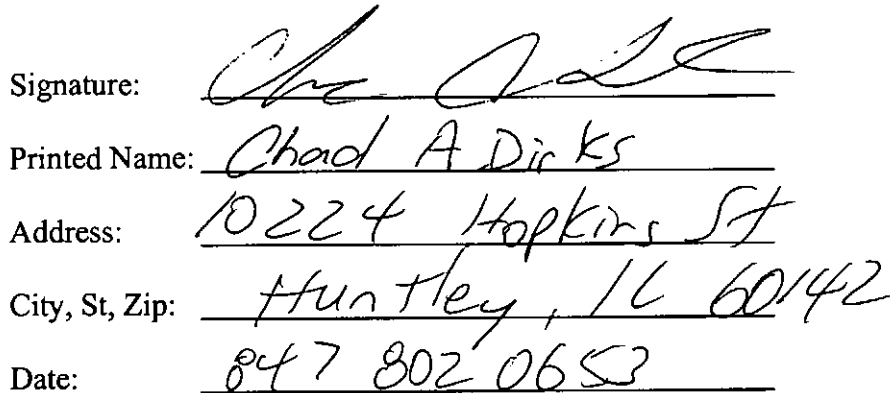 Signature:
Printed Name: Chad A Dirks
Address: 10224 Hopkins St
City, St, Zip: Huntley, IL 60142
Date: 847 802 0653